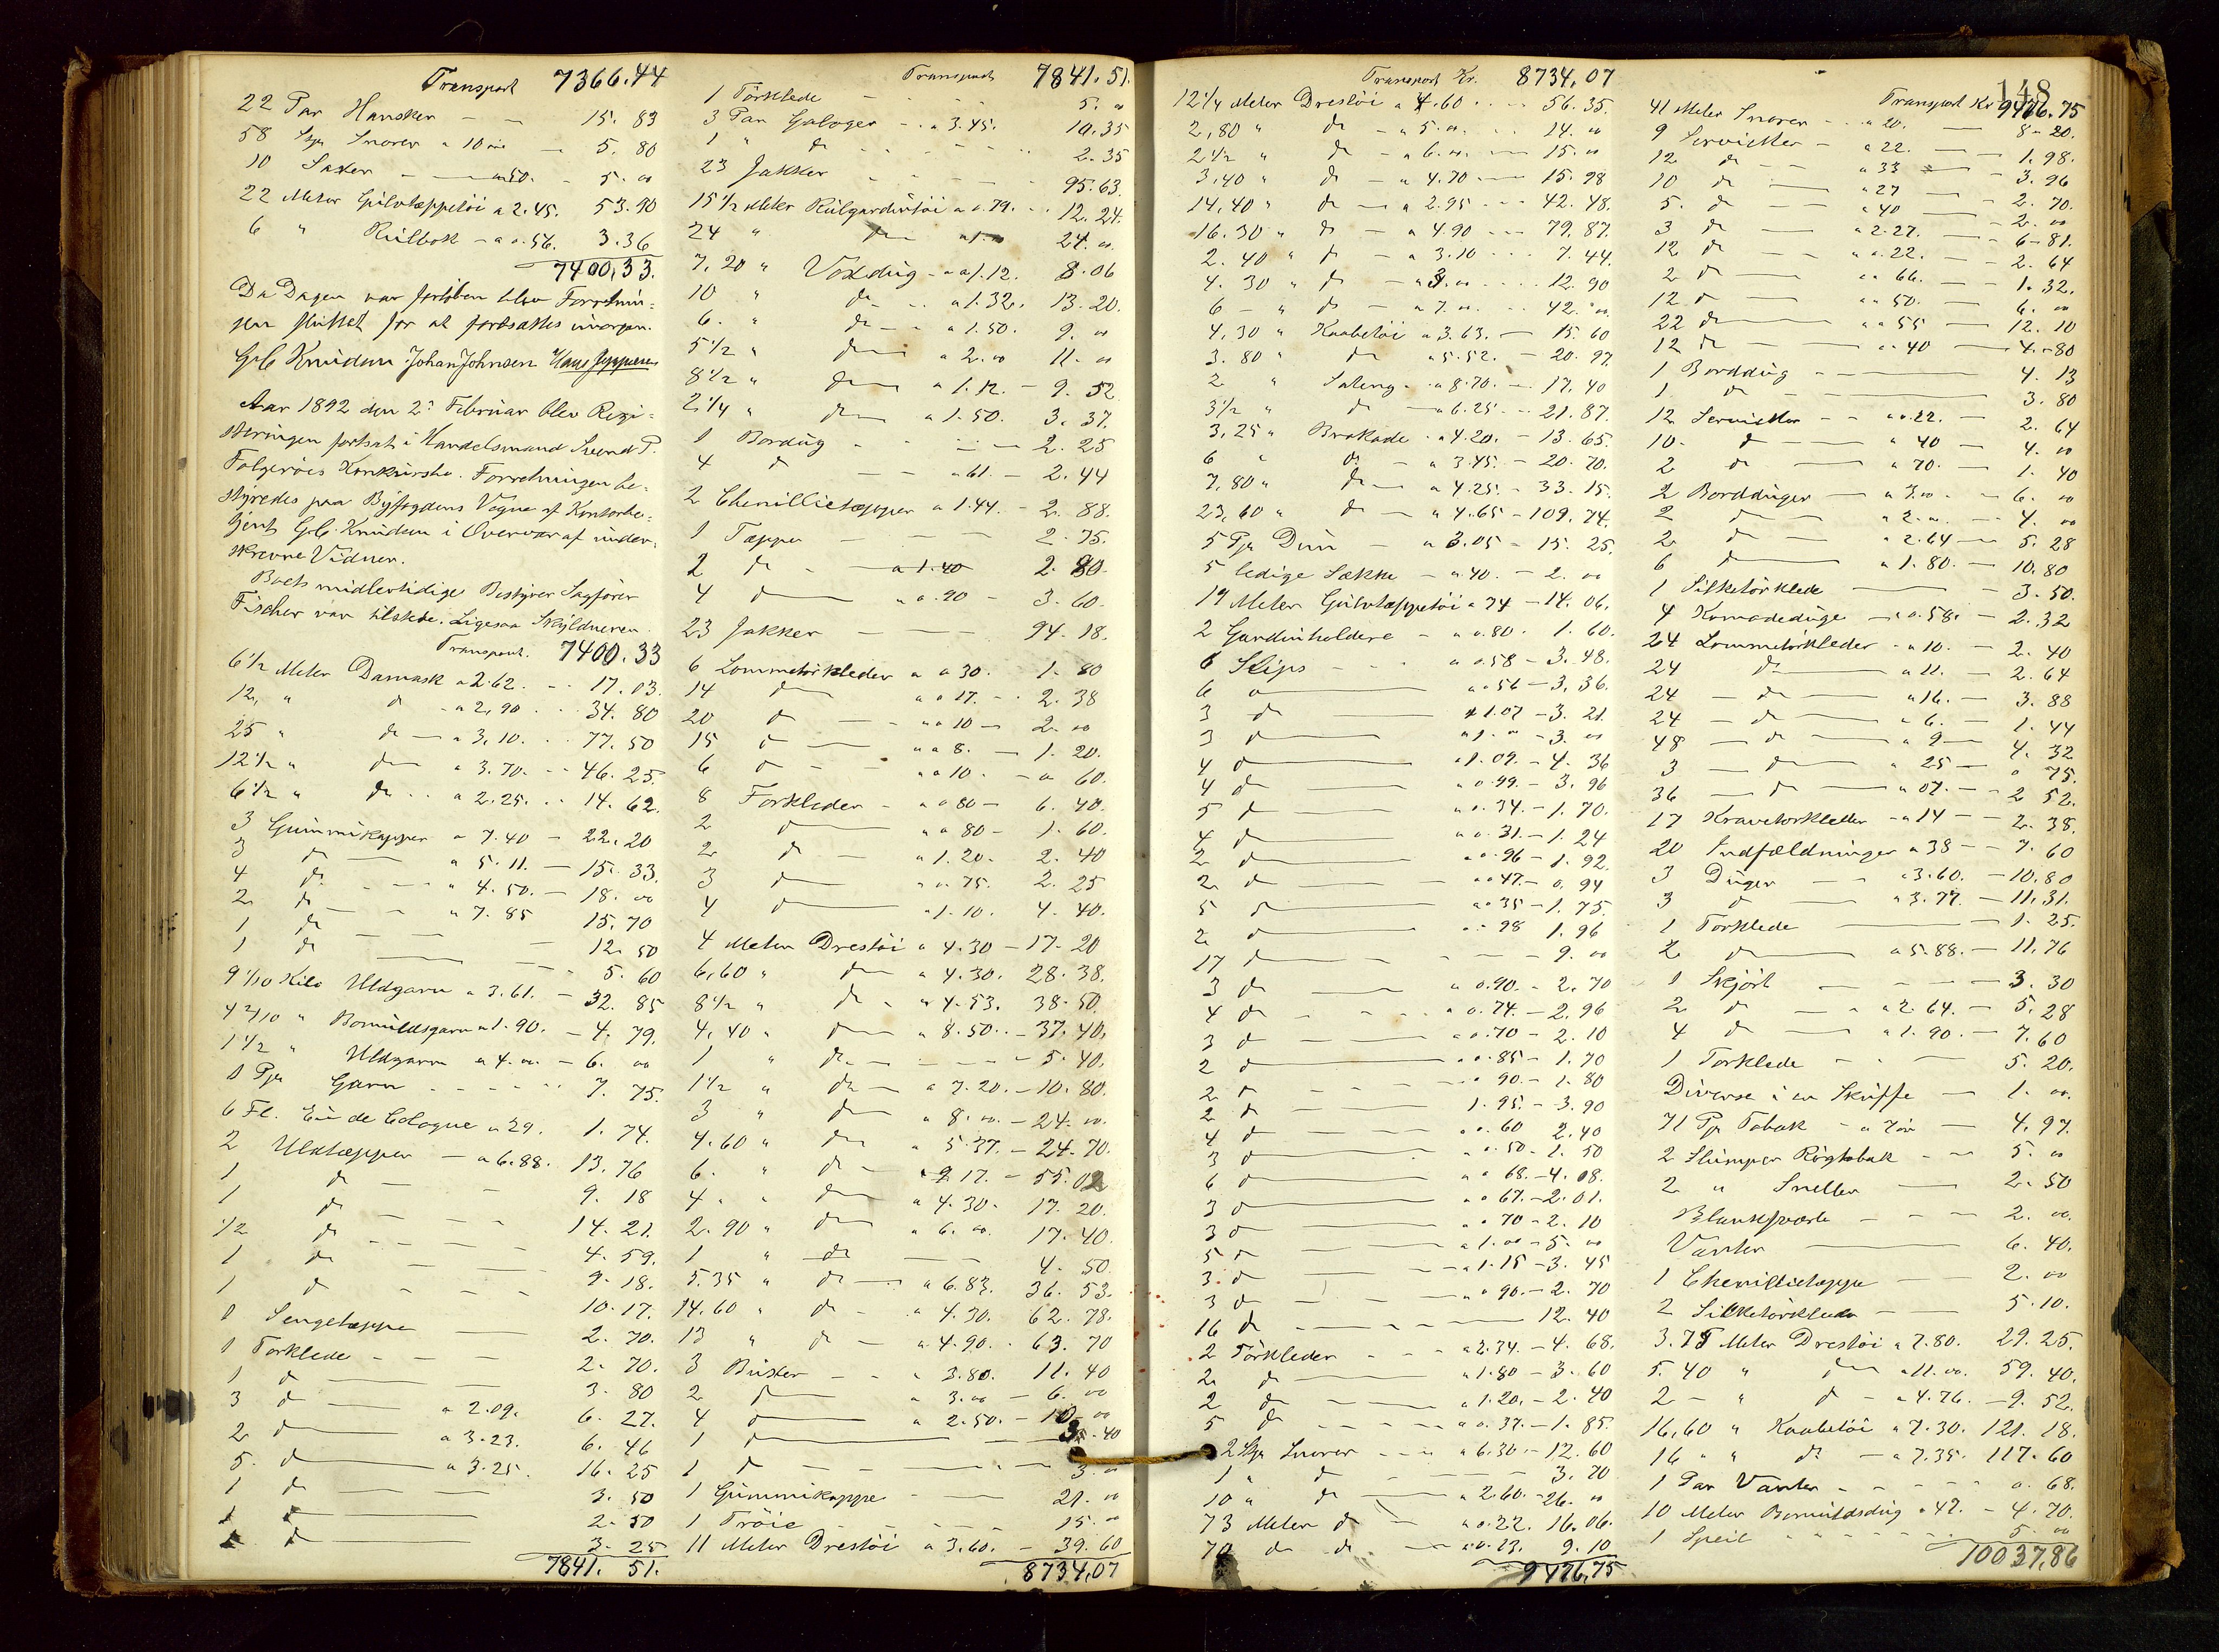 Transport 7366.44
22 Par Hansker - - 15. 83
58 Stk Snorer a 10 öre - 5. 80
10 Saxer - - a 50. - 5. 00
22 Meter Gulvtæppetöi a 2.45. 53.90
6 " - a 0.56. 3.36
7400,33.
Da Dagen var forløben blev Forretnin-
gen sluttet for at fortsættes imorgen.
G.C. Knudsen Johan Johnsen Hans Jeppesen
Aar 1892 den 2. Februar blev Regi-
streringen fortsat i Handelsmand Svend P.
Falgeröes Konkursbo. Forretningen be-
styredes paa Byfogdens Vegne af Kontorbe-
tjent G.C. Knudsen i Overvær af under-
skrevne Vidner.
Boets midlertidige Bestyrer Sagförer
Fischer var tilstede. Ligesaa Skyldneren
Transport. 7400.33
6 1/2 Meter Damask a 2.62. - 17.03.
12, " do - a 2,90 - 34. 80
25 " do - a 3,10. - 77.50
12 1/2 " do a 3.70. - 46.25.
6 1/2 " do a 2.25. - 14. 62.
3 Gummikapper a 7.40 - 22.20
3 do - a 5.11. - 15. 33.
4 do - a 4.50. - 18. 00
2 do - a 7.85 15.70
1 do - - 12.50
1 do - - 5. 60
9 1/10 Kilo Uldgarn a 3.61. - 32. 85
4 2/10 " Bomuldsgarn a 1.90. - 4. 79.
1 1/2 " Uldgarn a 4.00 - 6. 00
1 Garn - - 7. 75.
6 Fl. Eau de Cologne a 29. 1. 74.
2 Uldtæpper - a 6.88. 13.76
1 do - - 9. 18
1 do - - 14.21.
1/2 do - - 4.59.
1 do - - 9.18.
1 do - - 10.17.
1 Sengetæppe - 2.70.
1 Törklede - - 2.70.
1 do - 3. 80
3 do - a 2.09. 6. 27.
2 do - a 3.23. 6. 46
5. do - a 3.25. 16. 25
1 do - 3. 50
1 do - 2. 50
1 do - 3. 25
7841. 51.
Transport 7841.51.
1 Törklede - - 5. 00
3 Par Galoger - a 3.45. 10.35
1 " do - - 2.35
23 Jakker - - 95.63.
15 1/2 Meter Rulgardintöi a 0.79. 12. 24.
24 " do a 1.00 24. 00
7,20 " Voxdug - a 1.12. 8.06
10 " do - a 1.32. 13.20.
6. " do - a 1.50. 9. 00
5 1/2 " do a 2.00 11. 00
8 1/2 " do a 1.12. - 9. 52
2 1/4 " do a 1.50. 3. 37.
1 Bordug - - 2. 25
4 do - - a 61. - 2. 44
2 Chenillietæpper a 1.44. - 2. 88.
1 Tæppe - - 2. 75.
2 do - a 1.40 2. 80
4 do - a 0.90 - 3. 60.
23 Jakker - - 94. 18.
6 Lommetörkleder a a 30. 1. 80
14 do a 0 17. - 2. 38
20 do - a 10 - 2. 00
15 do - a 8. - 1. 20.
6 do - - a 10. - 0 60.
8 Forkleder - a 0 80 - 6. 40.
2 do a 80 - 1. 60.
2 do - a 1.20. 2. 40
3 do a 75. 2. 25
4 do a 1.10. 4. 40.
4 Meter Drestöi a 4.30 - 17. 20
6,60 " do a 4.30. 28.38.
8 1/2 " do - a 4.53. 38.50.
4,40 " do a 8.50. - 37.40,
1 " do - - 5.40.
1 1/2 " do - a 7.20. - 10.80.
3 " do a 8.00. - 24.00.
4.60 " do a 5.37. - 24.70.
6. " do - a 9.17. - 55.02
4. " do a 4.30. 17. 20.
2.90 " do a 6.00. 17.40.
1 " do - 4. 50.
5.35 " do - a 6.83. 36. 53.
14.60 " do - a 4.30. 62.78.
13 " do - a 4.90. 63. 70
3 Buster - - a 3.80. 11.40
2 do a 3.00 - 6. 00
4 do - a 2.50. - 10. 00
1 do - .40
1 do - - 3. 00
1 Gummikappe - 21. 00
1 Tröie - - 15. 00
11 Meter Drestöi a 3.60. - 39.60
8734,07
Transport Kr. 8734,07
12 1/4 Meter Drestöi a 4.60 - 56.35.
2,80 " do - a 5.00. - 14. 00
2 1/2 " do - a 6.00. - 15. 00
3,40 " do - a 4.70 - 15.98
14,40 " do - a 2.95 - 42.48.
16.30 " do - a 4.90 - 79.87.
2.40 " do - a 3.10 - 7.44.
4.30 " do - a 3.00 - 12.90
6 - " do - a 7.00 - 42.00.
4,30 " Kaabetöi a 3.63. - 15.60
3.80 " do a 5.52. - 20.97.
2 " a 8.70. - 17,40
3 1/2 " do - a 6.25. - 21.87.
3,25 " Brokade a 4.20. - 13.65.
6 " do - a 3.45. - 20.70.
7,80 " do - a 4.25. - 33.15.
23,60 " do - a 4.65 - 109.74.
5 Dun - a 3.05 - 15. 25.
5 ledige Sække - a 40. - 2. 00
19 Meter Gulvtæppetöi a 74 - 14.06.
2 Gardinholdere - a 0.80. 1.60.
6 Slips - - a 0.58 - 3.48.
6 do - a 0 56 - 3,36.
3 do - a 1.07 - 3. 21.
3 do - a 1.00 - 3. 00
4 do - a 1.09. - 4. 36
4 do - a 0.99. - 3. 96
5 do - a 0.34. - 1. 70.
4 do - a 0.31. - 1. 24
2 do - a 0.96 - 1. 92.
2 do - a 0 47. - 0. 94
5 do - a 0 35 - 1.75.
2 do - 98 1.96
17 do - - 9. 00
3 do - a 0.90. - 2.70
4 do - - a 0.74. - 2.96
3 do - a 0.70 - 2.10
2 do - a 0.85 - 1.70
2 do - - 90. - 1.80
2 do - 1.95. - 3.90
4 do - a 0. 60 2.40
3 do - a 0.50 - 1. 50
6 do - a 0 68. - 4.08.
3 do - a 0 67. - 2.01.
3 do - a 0 70 - 2. 10
5 do - a 1.00 - 5. 00
3. do - - a 1.15 - 3. 45
3 do - a 0 90. - 2. 70
16 do - - 12. 40
2 Törkleder - - a 2.34. - 4. 68.
2 do - a 1.80 - 3. 60
2 do - a 1.20. - 2. 40
5 do - a 0. 37. - 1. 85.
2 Stk Snorer - - a 6.30. - 12.60
1 " do - - 3. 70
10 " do - a 2.60. - 26. 00
73 Meter do - a 0.22. 16.06.
70 do do - a 0.13. 9.10
9476,75
148
Transport Kr 9476.75
41 Meter Snorer - a 20. - 8 - 20.
9 Servietter - a 22. - 1. 98.
12 do - a 33 - 3. 96
10 do - a 27 - 2. 70.
5. do - a 40 - 2. 00
3 do - a 2.27. - 6 - 81.
12 do - a 0.22. - 2. 64
2 do - a 66. - 1. 32.
12 do - a 50. - 6. 00
22 do - a 0 55 - 12. 10
12 do - a 40 - 4. 80
1 Borddug - 4. 13
1 do - 3. 80
12 Servietter - - a 0.22. - 2. 64
10. do - a 40 - 4. 00
2 do - a 70. - 1. 40
2 Borddúger - a 3.00. - 6. 00
2 do - a 2.00. - 4. 00
2 do - a 2.64 - 5. 28
6 do - a 1.80. - 10.80
1 Silketörklede - 3. 50.
4 Komodeduge - a 0.58. - 2. 32
24 Lommetörkleder - a 10. - 2. 40
24 do - a 11. - 2. 64
24 - do - a 16. - 3. 88
24 - do - a 6. - 1. 44
48 - do - a 9 - 4. 32
3 - do - a 25 - 0 75.
36 - do - a 07. - 2 52.
17 Kravetörkleder - a 14 - 2. 38.
20 Indfældninger a 38 - 7. 60
3 Duger - a 3.60. - 10.80
3 do - a 3.77. - 11,31.
1 Törklede - 1. 25.
2 do - a 5.88. - 11.76
1 Skjört - - 3. 30
2 do - a 2.64. - 5. 28
4 do - a 1.90. - 7.60
1 Torklede - - 5. 20.
Diverse i en Skuffe - 1. 00.
71 Tobak - a 7 öre - 4.97.
2 Slumper Rögtobak - - 5. 00
2 " Sneller - 2. 50
Blanksværte - - 2. 00.
Vanter - 6. 40.
1 Chenillietæppe - 2. 00
2 Silketörkleder - 5.10.
3.75 Meter Drestöi a 7.80. 29.25.
5. 40 " do a 11.00. 59.40.
2 - " do - a 4.76. - 9. 52.
16,60 " Kaabetöi a 7.30. 121.18.
16 " " do - a 7.35. 117.60
1 Par Vanter - - 0. 68.
10 Meter Bomuldsdug a 47. - 4.70.
1 Speil - - 5. 00
10037,86